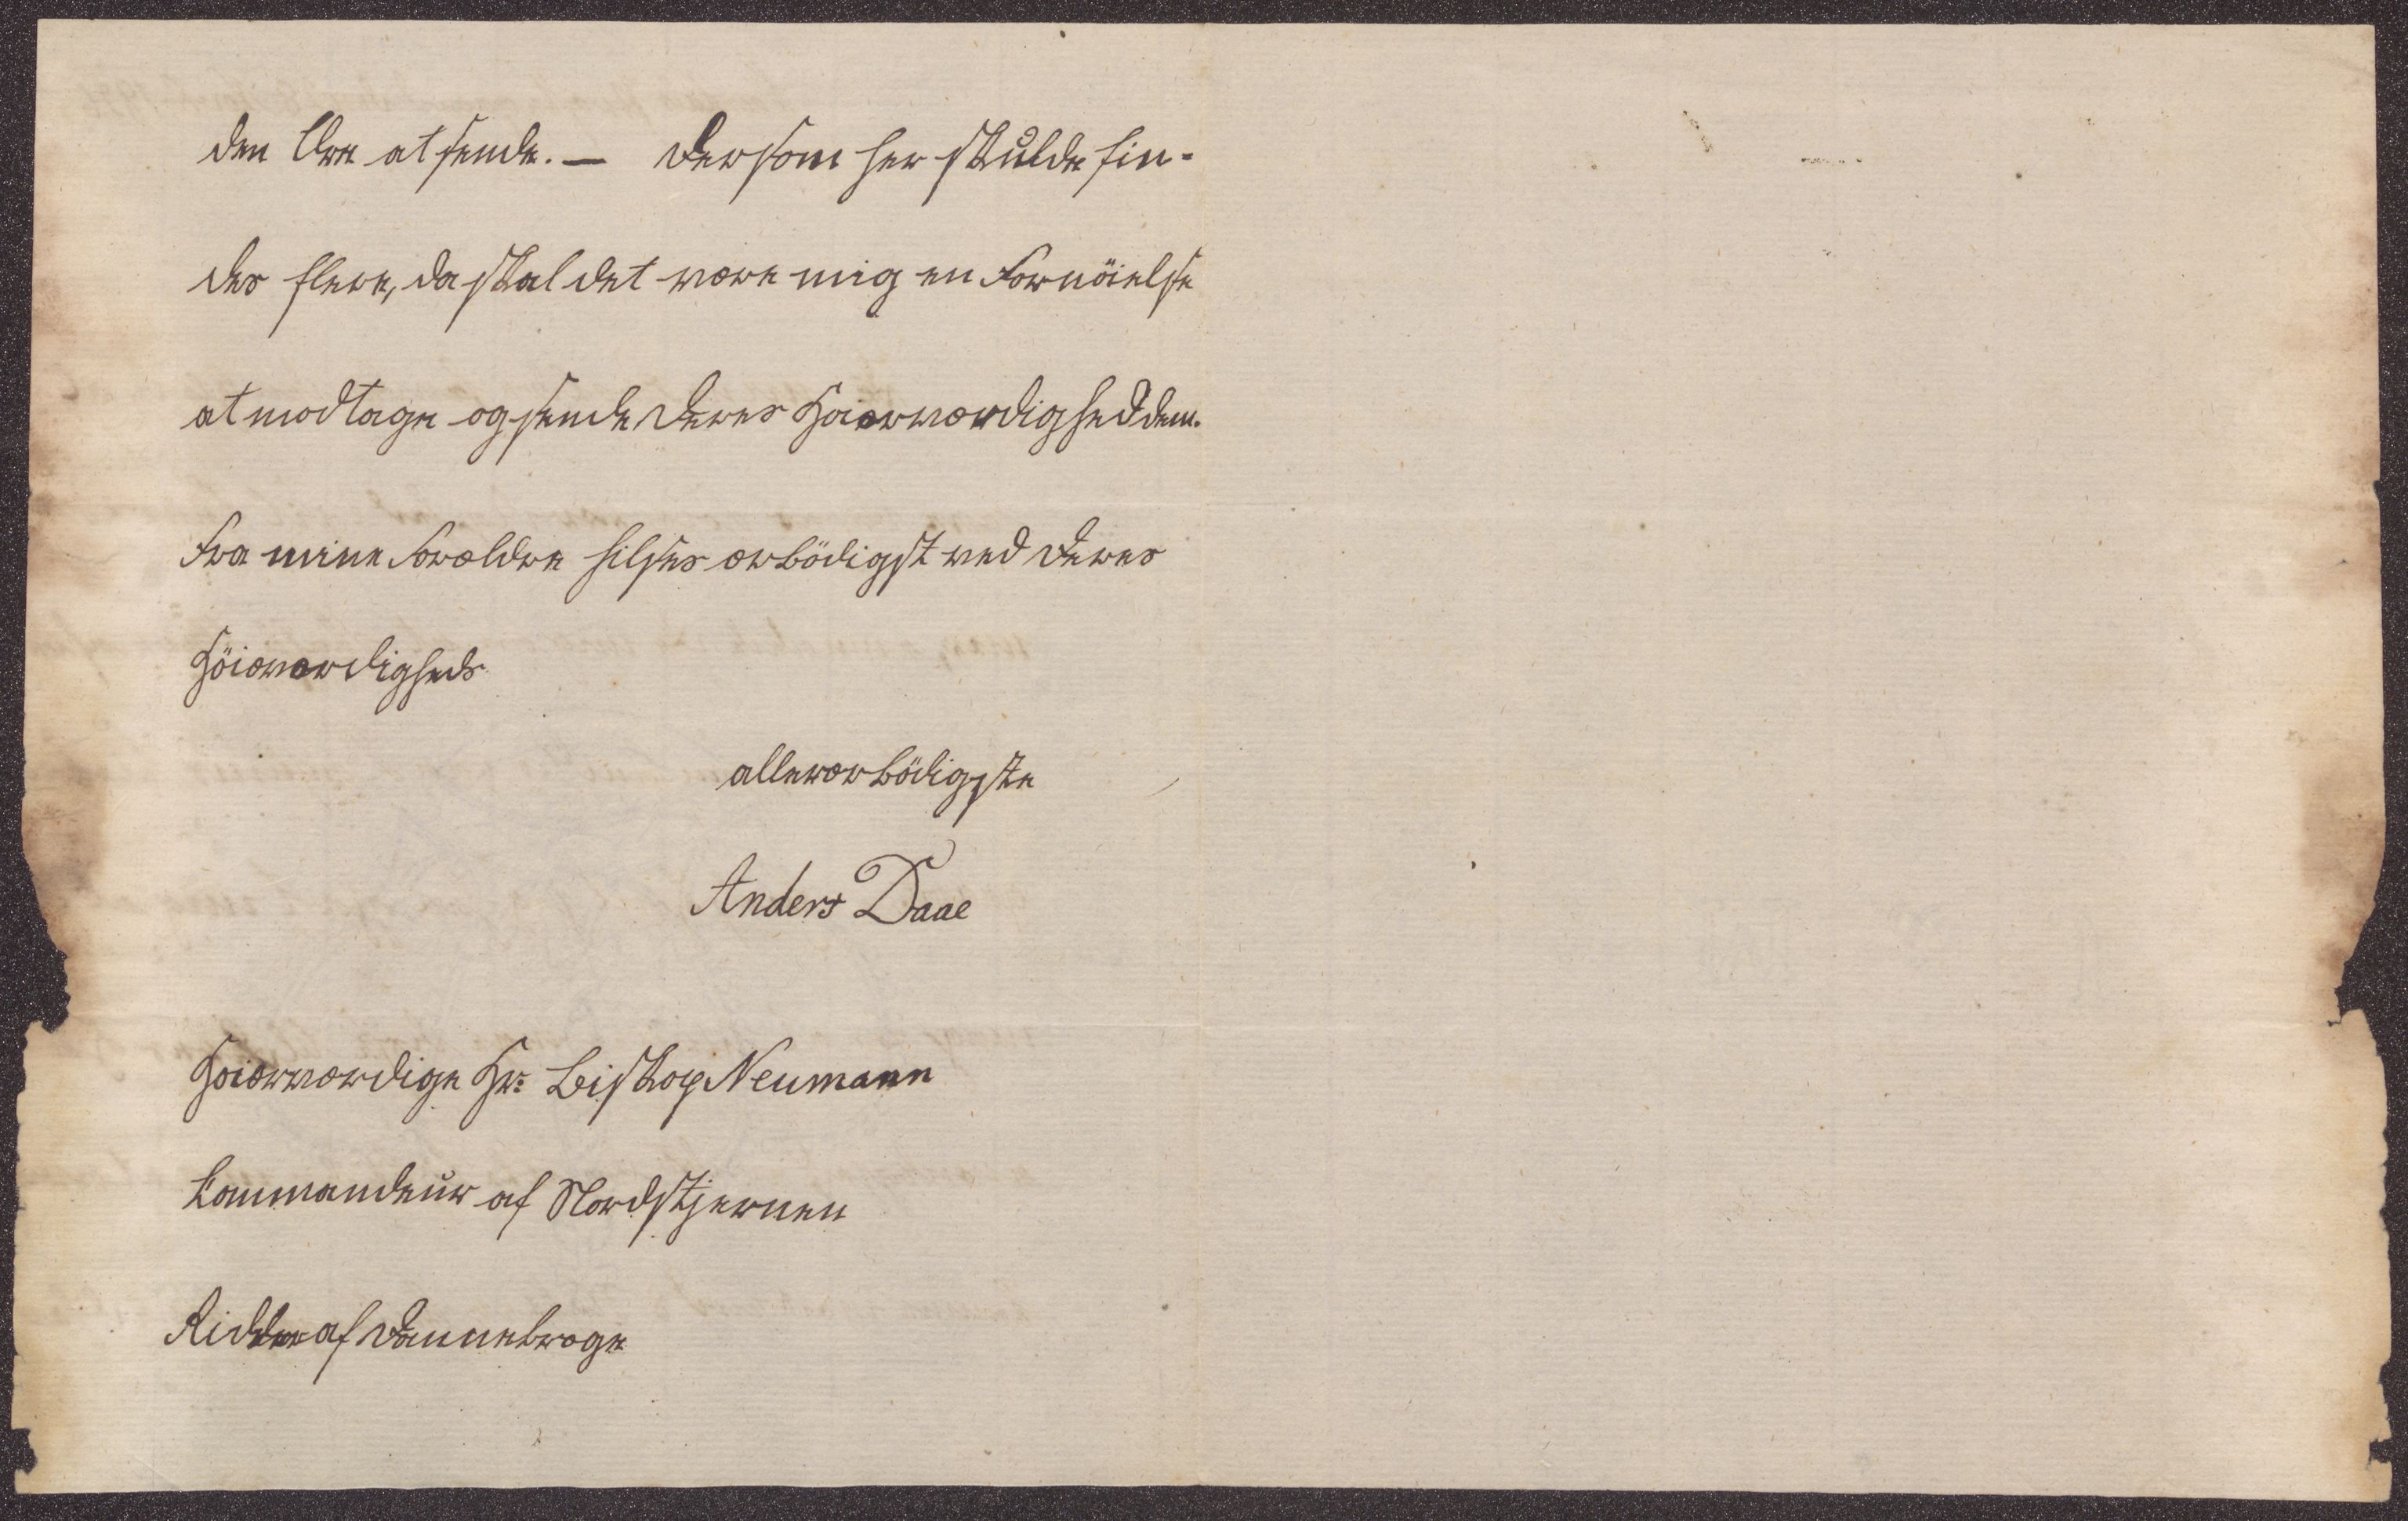 den Ære at sende. — Dersom her skulde fin-
des flere, da skal det være mig en Fornöielse
at modtage og sende Deres Höiærværdighed dem.
Fra mine Forældre hilses ærbödigst ved Deres
Höiærværdigheds
allerærbödigste
Anders Daae
Hoiærværdige Hr: Biskop Neumann
Commandeur af Nordstjernen
Ridder af Dannebroge